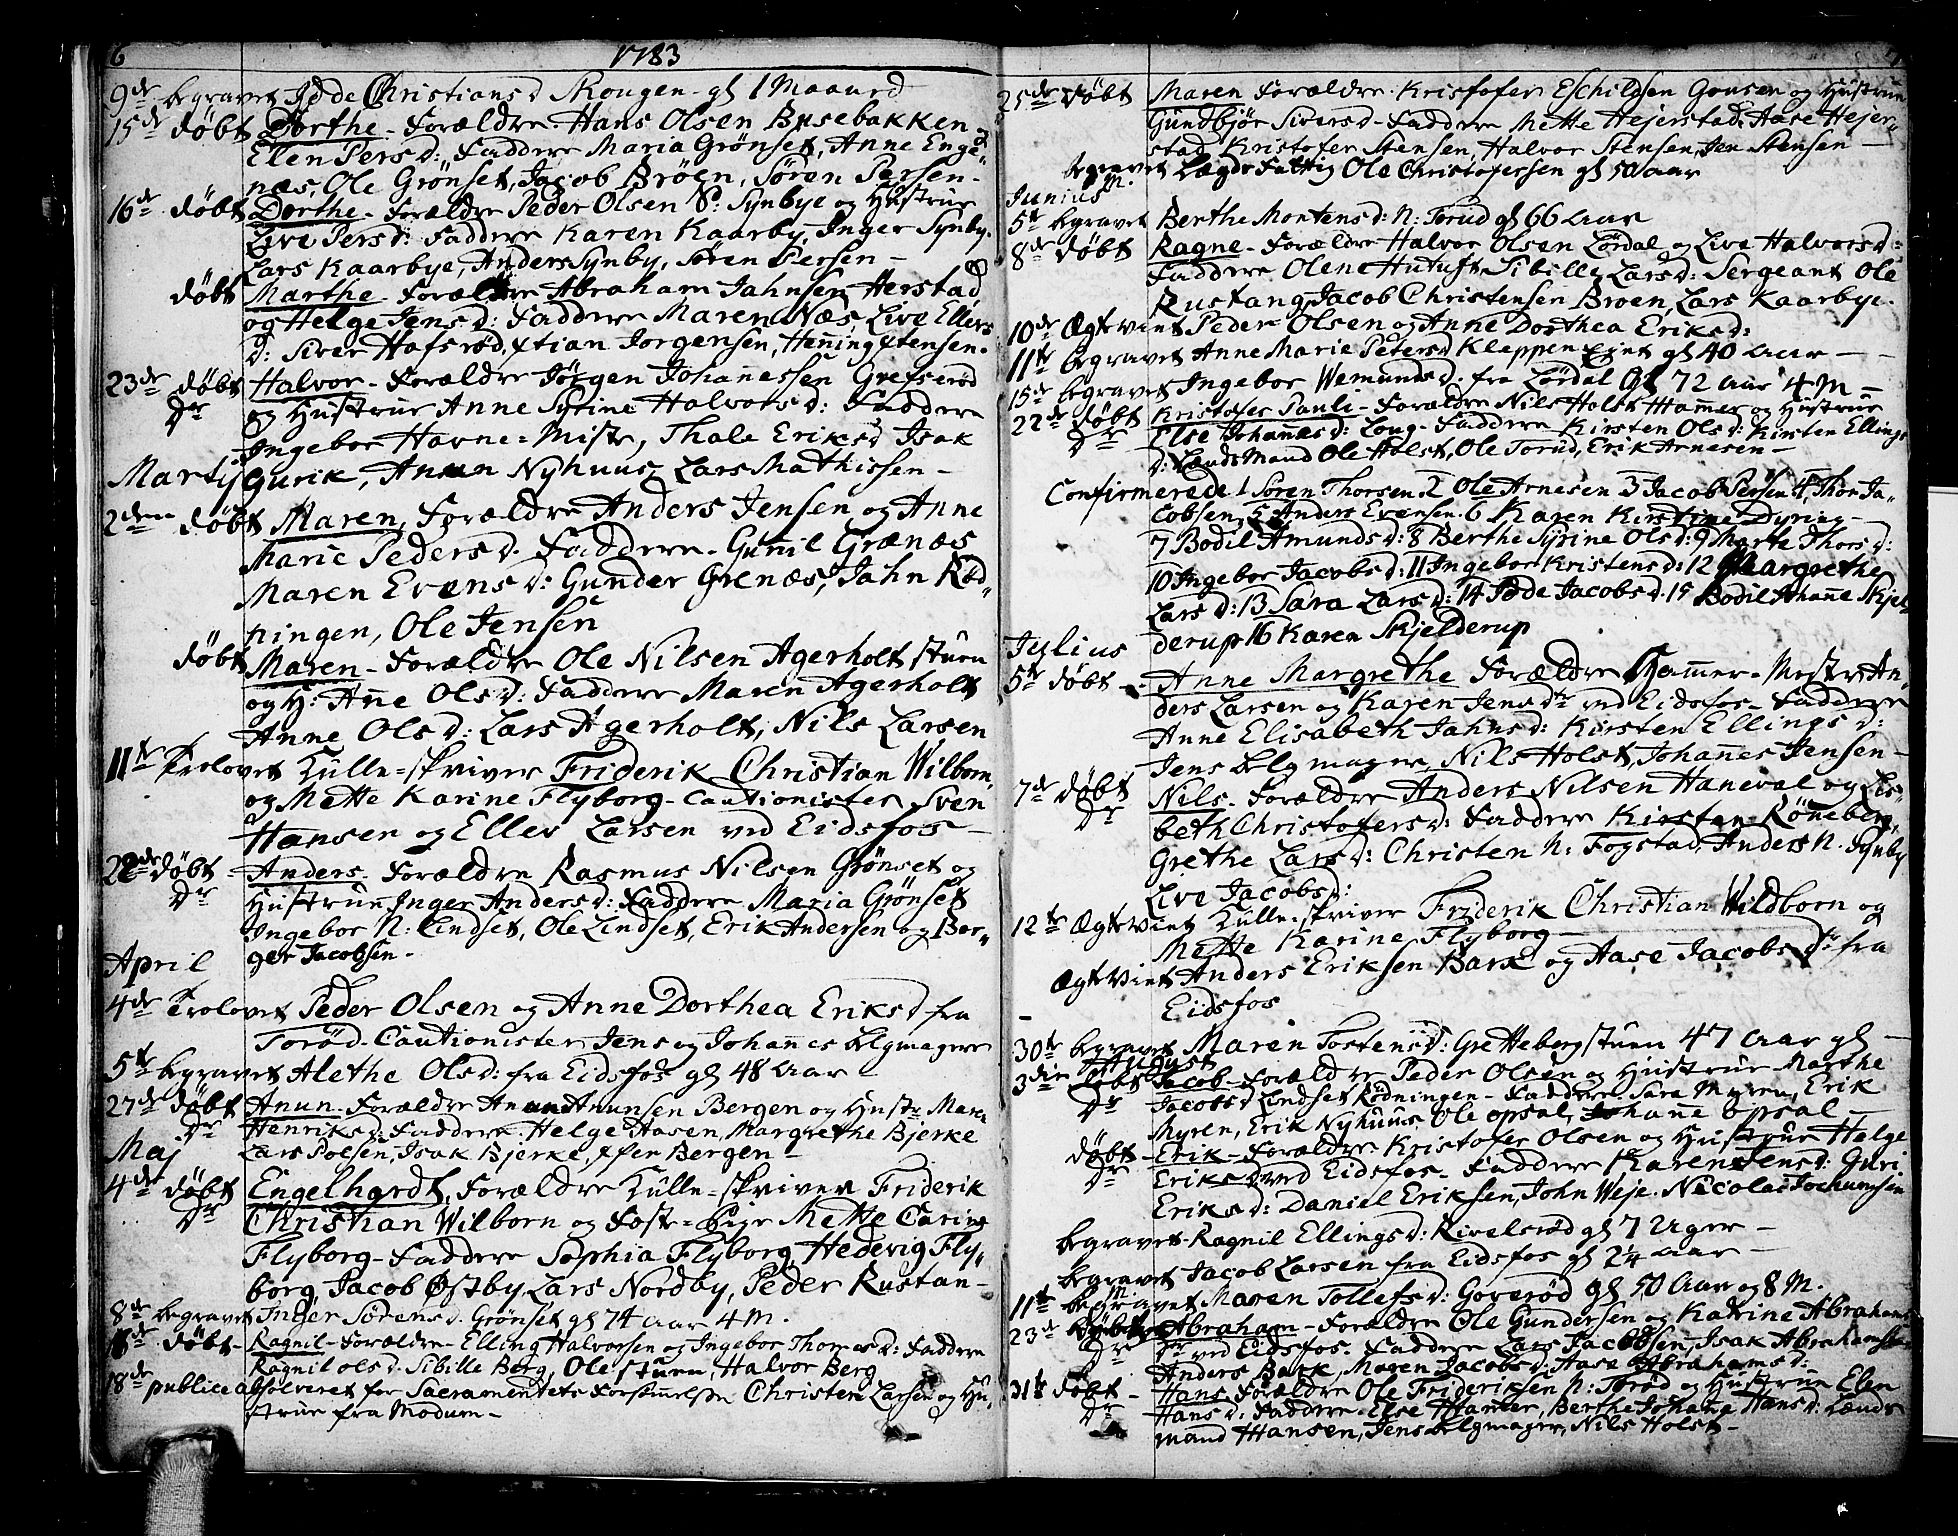 6
1783
9de begravet Idde Christiansd Skougen gl 1 Maaned
15de döbt Dorthe - Forældre Hans Olsen Busebakken og
Elen Persd: Faddere Maria Grönset, Anne Enge„
næs, Ole Grönset, Jacob Bröen, Sören Persen -
16de döbt Dorthe - Forældre Peder Olsen N: Synbye og Hustrue
Live Persd: Faddere Karen Kaarby, Inger Synby.
Lars Kaarbye, Anders Synby, Sören Persen -
döbt Marthe Forældre Abraham Jahnsen Herstad
og Helge Jensd: Faddere Maren Næs, Live Ellers
d: Siver Hafsröd, xtian Jorgensen, Henning xtensen.
23de döbt Halvor - Forældre Jörgen Johannessen Grefseröd
Dr og Hustrue Anne Syrine Halvorsd: Faddere
Ingebor Havne=Mistr, Thale Eriksd Isak
Martij Gurik, Anun Nyhuus, Lars Mathissen -
2den döbt Maren, Forældre Anders Jensen og Anne
Marie Pedersd. Faddere - Gunil Grænæs
Maren Evensd: Gunder Grenæs, Jahn Röd„
ningen, Ole Jensen
döbt Maren - Forældre Ole Nilsen Agerholt stuen
og H: Ane Olsd: Faddere Maren Agerholt
Anne Olsd: Lars Agerholt, Nils Larsen
11te Trolovet Hülle=skriver Friderik Christian Wilborn
og Mette Karine Flyborg - Cautionister Sven
Hansen og Eller Larsen ved Eidsfos -
22de döbt Anders - Forældre Rasmus Nilsen Grönset og
Dr Hustrue Inger Andersd: Faddere Maria Grönset
Ingebor N: Lindset, Ole Lindset, Erik Andersen og Ber„
April ger Jacobsen -
4de Trolovet Peder Olsen og Anne Dorthea Eriksd fra
Toröd - Cautionister Jens og Johannes Belgmagere
5te begravet Alethe Olsd: fra Eidsfos gl 48 aar -
27de döbt Anun - Forældre Anun Anunsen Bergen og Hustr Mari
Dr Henriksd - Faddere - Helge Hasen, Margrethe Bjerke
Maj Lars Poesen, Isak Bjerke, xfer Bergen -
4de döbt Engelhardt, Forældre Hülle=skriver Friderik
Dr Christian Wilborn og Fæste=Pige Mette Carine
Flyborg - Faddere Sophia Flyborg Hedevig Fly„
borg, Jacob Østby, Lars Nordby, Peder Rustan -
8de begravet Inger Sörensd. Grönset gl 74 aar 4 M.
18de döbt - Ragnil - Forældre - Elling Halvorsen og Ingebor Thoresd: Faddere
Ragnil Olsd. Sibille Berg, Ole stuen, Halvor Berg
18de publice absolveret for Sacramentets Forsömmelse Christen Larsen og Hu„
strue fra Modum -
7
25de döbt Maren Forældre - Kristofer Eschildsen Gousen og Hustrue
Gundbjör Siversd - Faddere Mette Hejerstad, Aase Hejer„
stad, Kristofer Stensen, Halvor Stensen, Jen Stensen -
begravet Lægds Fattig Ole Christofersen gl 50 aar
Junius
5te begravet Berthe Mortensd: N: Torud gl 66 aar
8de döbt Ragne - Forældre Halvor Olsen Lördal og Live Halvorsd=
Faddere Olene Hutuft, Sibille Larsd: Sergeant Ole
Rustang, Jacob Christensen Broen, Lars Kaarbye.
10de Ægteviet Peder Olsen og Anne Dorthea Eriksd:
11te begravet Anne Marie Petersd Kleppen Eiet gl 40 aar - -
15de begravet Ingebor Wemundsd. fra Lördal gl 72 aar 4 M -
22de döbt Kristofer Pauli - Forældre Nils Holst Hammer og Hustrue
Dr Else Johannesd: Loug - Faddere Kirsten Olsd: Kirsten Ellings
d: Lænds Mand Ole Holst, Ole Torud, Erik Arnesen -
Confirmerede 1 Sören Thorsen 2 Ole Arnesen 3 Jacob Persen 4 Thor Ja„
cobsen, 5 Anders Evensen. 6 Karen Kirstine Dyring -
7 Bodil Amundsd: 8 Berthe Syrine Olsd: 9 Marte Thorsd:
10 Ingebor Jacobsd: 11 Ingebor Kristensd: 12 Margrethe
Larsd: 13 Sara Larsd: 14 Idde Jacobsd. 15 Bodil Johanne Skjel„
Julius derup 16 Karen Skjelderup
5te döbt - Anne Margrethe Forældre Hammer-Mester An„
ders Larsen og Karen Jensdtr ved Eidsfos - Faddere
Anne Elisabeth Jahnsd: Kirsten Ellingsd:
Jens belgmager, Nils Holst, Johannes Jensen -
7de döbt Nils - Forældre Anders Nilsen Haneval og Lis„
Dr beth Christofersd: Faddere Kirsten Röneberg,
Grethe Larsd: Christen N: Fogstad, Anders N. Synby
Live Jacobsd:
12te Ægteviet Hulle=skriver Friderik Christian Wildborn og
Mette Karine Flyborg -
Ægteviet Anders Eriksen Bark og Aase Jacobsdr fra
Eidsfos
30te begravet Maren Tostensd: Gretteberg stuen 47 aar gl -
August
3die döbt Jacob - Forældre Peder Olsen og Hustrue Marthe
Dr Jacobsd Lindset Rödningen - Faddere Sara Myren, Erik
Myren, Erik Nyhuus, Ole Opsal, Johanne Opsal -
döbt - Erik - Forældre Kristofer Olsen og Hustrue Helge
Dr Eriksd ved Eidsfos - Faddere Karen Jensd: Guri
Eriksd: Daniel Eriksen, John Weje. Nicolai Jochumsen
begravet - Ragnil Ellingsd: Rivelsröd gl 7 Uger -
begravet Jacob Larsen fra Eidsfos gl 2¼ aar -
11te begravet Maren Tollefsd: Goveröd gl 50 aar og 8 M.
23de döbt Abraham - Forældre Ole Gundersen og Katrine Abrahams
Dr dr ved Eidsfos. Faddere Lars Jacobsen, Isak Abrahamsen
Anders Bark, Maren Jacobsd: Aase Abrahamsd:
31te döbt - Hans - Forældre Ole Frideriksen N: Toröd og Hustrue Elen
Dr Hansd: Faddere - Else Hammer, Berthe Johanne Hansd: Lænds
mand Hansen, Jens belgmager, Nils Holst -